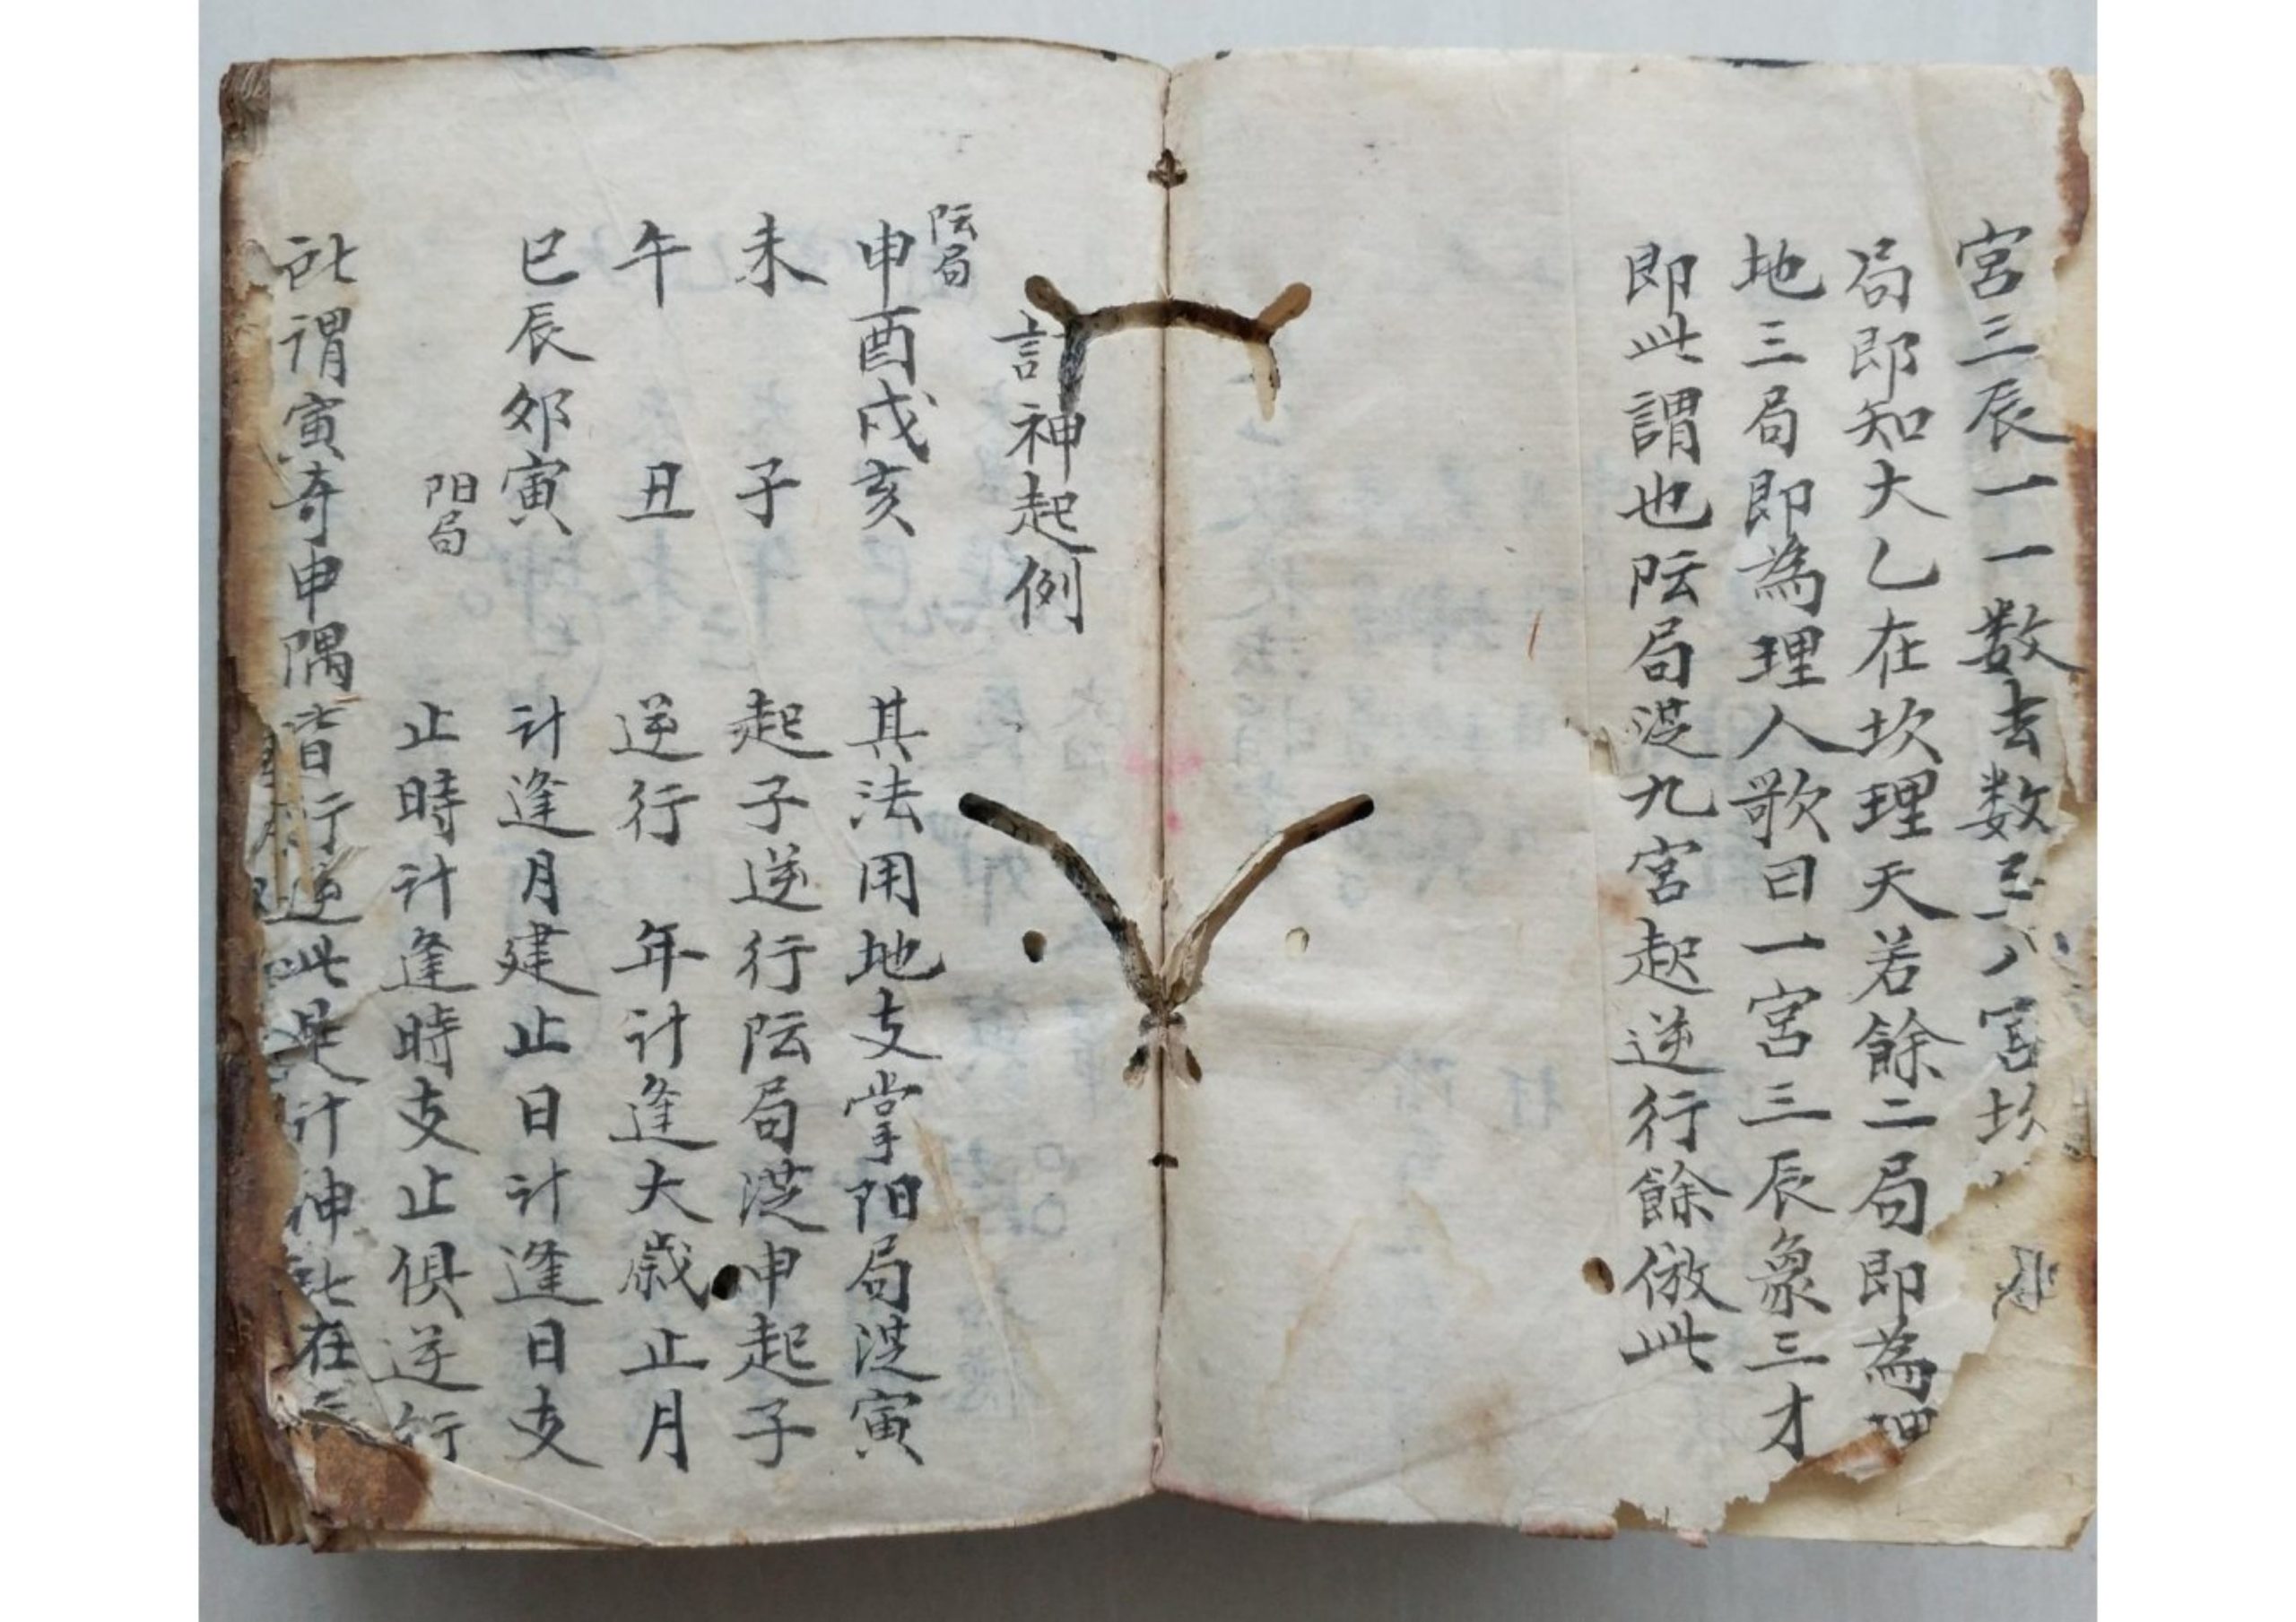 宮三辰一一数去数至八宮坎
局即知大乙在坎理天若餘二局即為理
地三局即為理人歌曰一宮三辰象三才
即此謂也阮局従九宮起逆行餘倣此
計神起例
阮局
申酉戌亥 其法用地支掌阳局従寅
未 子 起子逆行阮局従申起子
午 丑 逆行 年計逢大歲止月
巳辰夘寅 计逢月建止日计逢日支
阳局
止時计逢時支止俱逆行
所謂寅奇申隅皆行逆此是计神所在